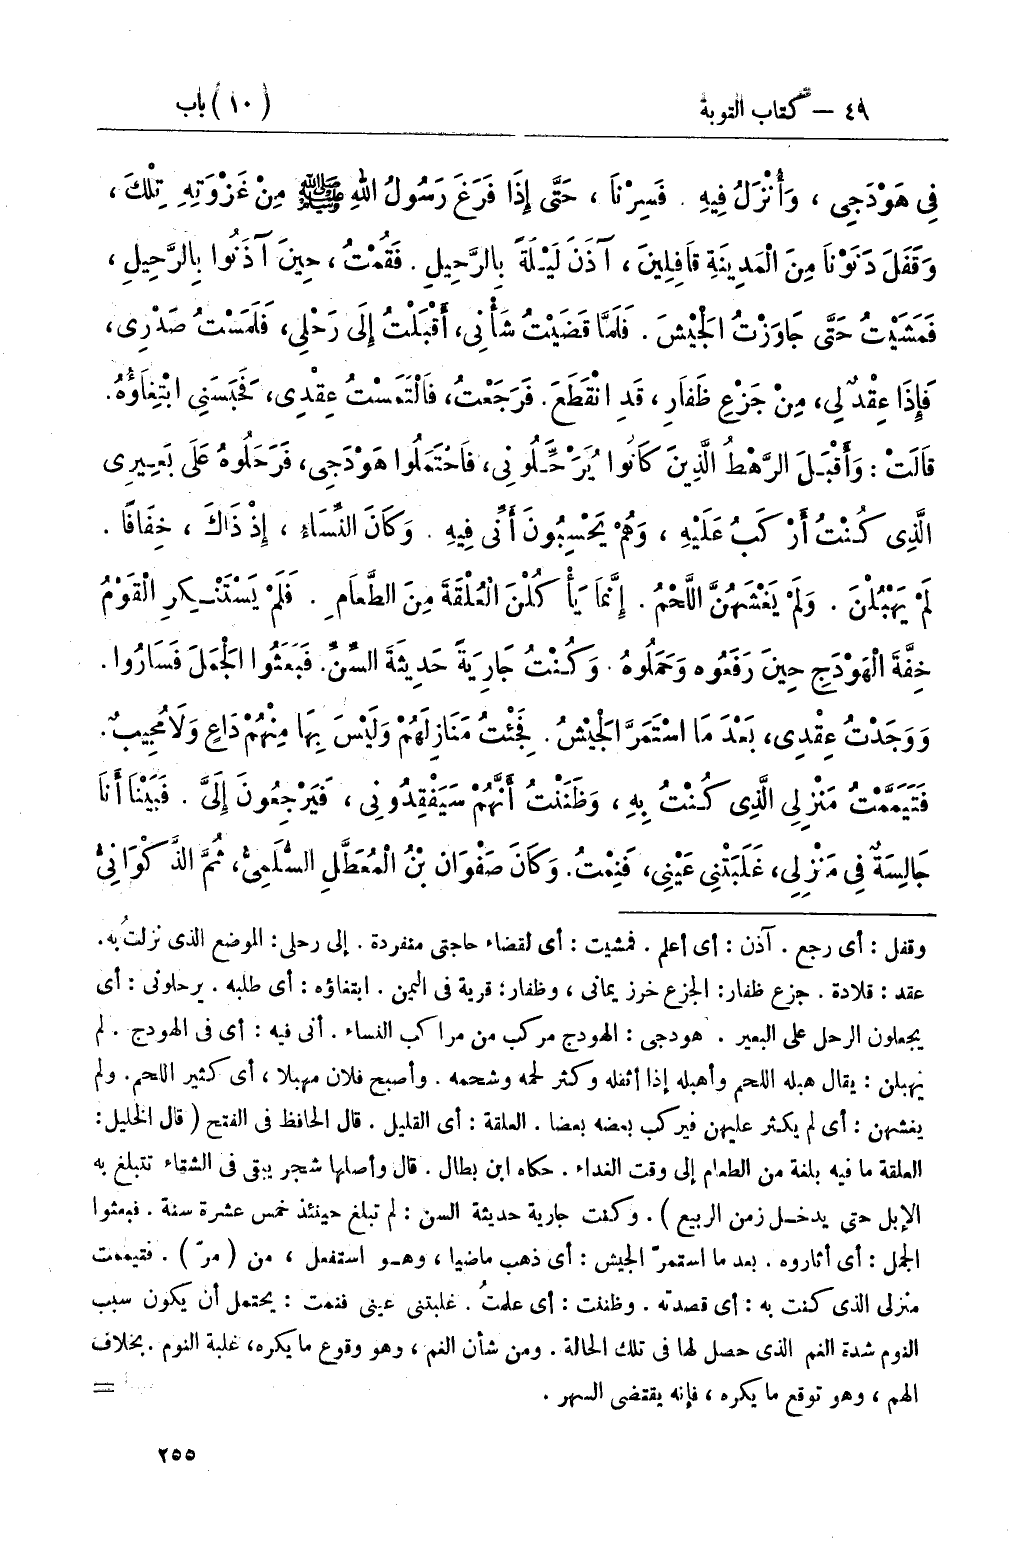 ٤٩ – كتاب التوبة (١٠) باب
فِي هَوْدَجِى ، وَأُنْزَلُ فِيهِ . فَسِرْنَا ، حَتَّى إِذَا فَرَغَ رَسُولُ اللهِ ﷺ مِنْ غَزْوَتِهِ تِلْكَ ،
وَقَفَلَ دَنَوْنَا مِنَ الْمَدِينَةِ قَافِلِينَ ، آذَنَ لَيْلَةً بِالرَّحِيلِ . فَقُمْتُ ، حِينَ آذَنُوا بِالرَّحِيلِ ،
فَمَشَيْتُ حَتَّى جَاوَزْتُ الْجَيْشَ . فَلَمَّا قَضَيْتُ شَأْنِى ، أَقْبَلْتُ إِلَى رَحْلِى ، فَلَمَسْتُ صَدْرِى ،
فَإِذَا عِقْدٌ لِى ، مِنْ جَزْعِ ظَفَارِ ، قَدِ انْقَطَعَ . فَرَجَعْتُ ، فَالْتَمَسْتُ عِقْدِى ، فَحَبَسَنِى ابْتِغَاؤُهُ .
قَالَتْ : وَأَقْبَلَ الرَّهْطُ الَّذِينَ كَانُوا يُرَحِّلُونِى ، فَاحْتَمَلُوا هَوْدَجِى ، فَرَحَلُوهُ عَلَى بَعِيرِى
الَّذِى كُنْتُ أَرْكَبُ عَلَيْهِ ، وَهُمْ يَحْسِبُونَ أَنِّى فِيهِ . وَكَانَ النِّسَاءُ ، إِذْ ذَاكَ ، خِفَافًا .
لَمْ يَهْبُلْنَ . وَلَمْ يَغْشَهُنَّ اللَّحْمُ . إِنَّمَا يَأْكُلْنَ الْعُلْقَةَ مِنَ الطَّعَامِ . فَلَمْ يَسْتَنْكِرِ الْقَوْمُ
خِفَّةَ الْهَوْدَجِ حِينَ رَفَعُوه وَحَمَلُوهُ . وَكُنْتُ جَارِيَةً حَدِيثَةَ السِّنِّ . فَبَعَثُوا الْجَمَلَ فَسَارُوا .
وَوَجَدْتُ عِقْدِى ، بَعْدَ مَا اسْتَمَرَّ الْجَيْشُ . فَجِئْتُ مَنَازِلَهُمْ وَلَيْسَ بِهَا مِنْهُمْ دَاعٍ وَلَا مُجِيبٌ .
فَتَيَمَّمْتُ مَنْزِلِى الَّذِى كُنْتُ بِهِ ، وَظَنَنْتُ أَنَّهُمْ سَيَفْقِدُونِى ، فَيَرْجِعُونَ إِلَىَّ . فَبَيْنَا أَنَا
جَالِسَةٌ فِي مَنْزِلِى ، غَلَبَتْنِى عَيْنِى ، فَنِمْتُ . وَكَانَ صَفْوَانَ بْنُ الْمُعَطَّلِ السُّلَمِىُّ ، ثُمَّ الذَّكْوَانِىُّ
وقفل : أى رجع . آذن : أى أعلم . فمشيت : أى لقضاء حاجتى منفردة . إلى رحلى : الموضع الذى نزلتُ به .
عقد : قلادة . جزع ظفار : الجزع خرز يمانى ، وظفار : قرية فى اليمن . ابتغاؤه : أى طلبه . يرحلونى : أى
يجعلون الرحل على البعير . هودجى : الهودج مركب من مراكب النساء . أنى فيه : أى فى الهودج . لم
يهبلن : يقال هبله اللحم وأهبله إذا أثقله وكثر لحمه وشحمه . وأصبح فلان مهبلا ، أى كثير اللحم . ولم
يغشهن : أى لم يكثر عليهن فيركب بعضه بعضا . العلقة : أى القليل . قال الحافظ فى الفتح ( قال الخليل :
العلقة ما فيه بلغة من الطعام إلى وقت الغداء . حكاه ابن بطال . قال وأصلها شجر يبقى فى الشتاء تتبلغ به
الإبل حتى يدخل زمن الربيع ) . وكنت جارية حديثة السن : لم تبلغ حينئذ خمس عشرة سنة . فبعثوا
الجمل : أى أثاروه . بعد ما استمرّ الجيش : أى ذهب ماضيا ، وهو استفعل ، من ( مرّ ) . فتيممت
منزلى الذى كنت به : أى قصدته . وظننت : أى علمتُ . غلبتنى عينى فنمت : يحتمل أن يكون سبب
النوم شدة الغم الذى حصل لها فى تلك الحالة . ومن شأن الغم ، وهو وقوع ما يكره ، غلبة النوم . بخلاف
الهم ، وهو توقع ما يكره ، فإنه يقتضى السهر . =
٢٥٥